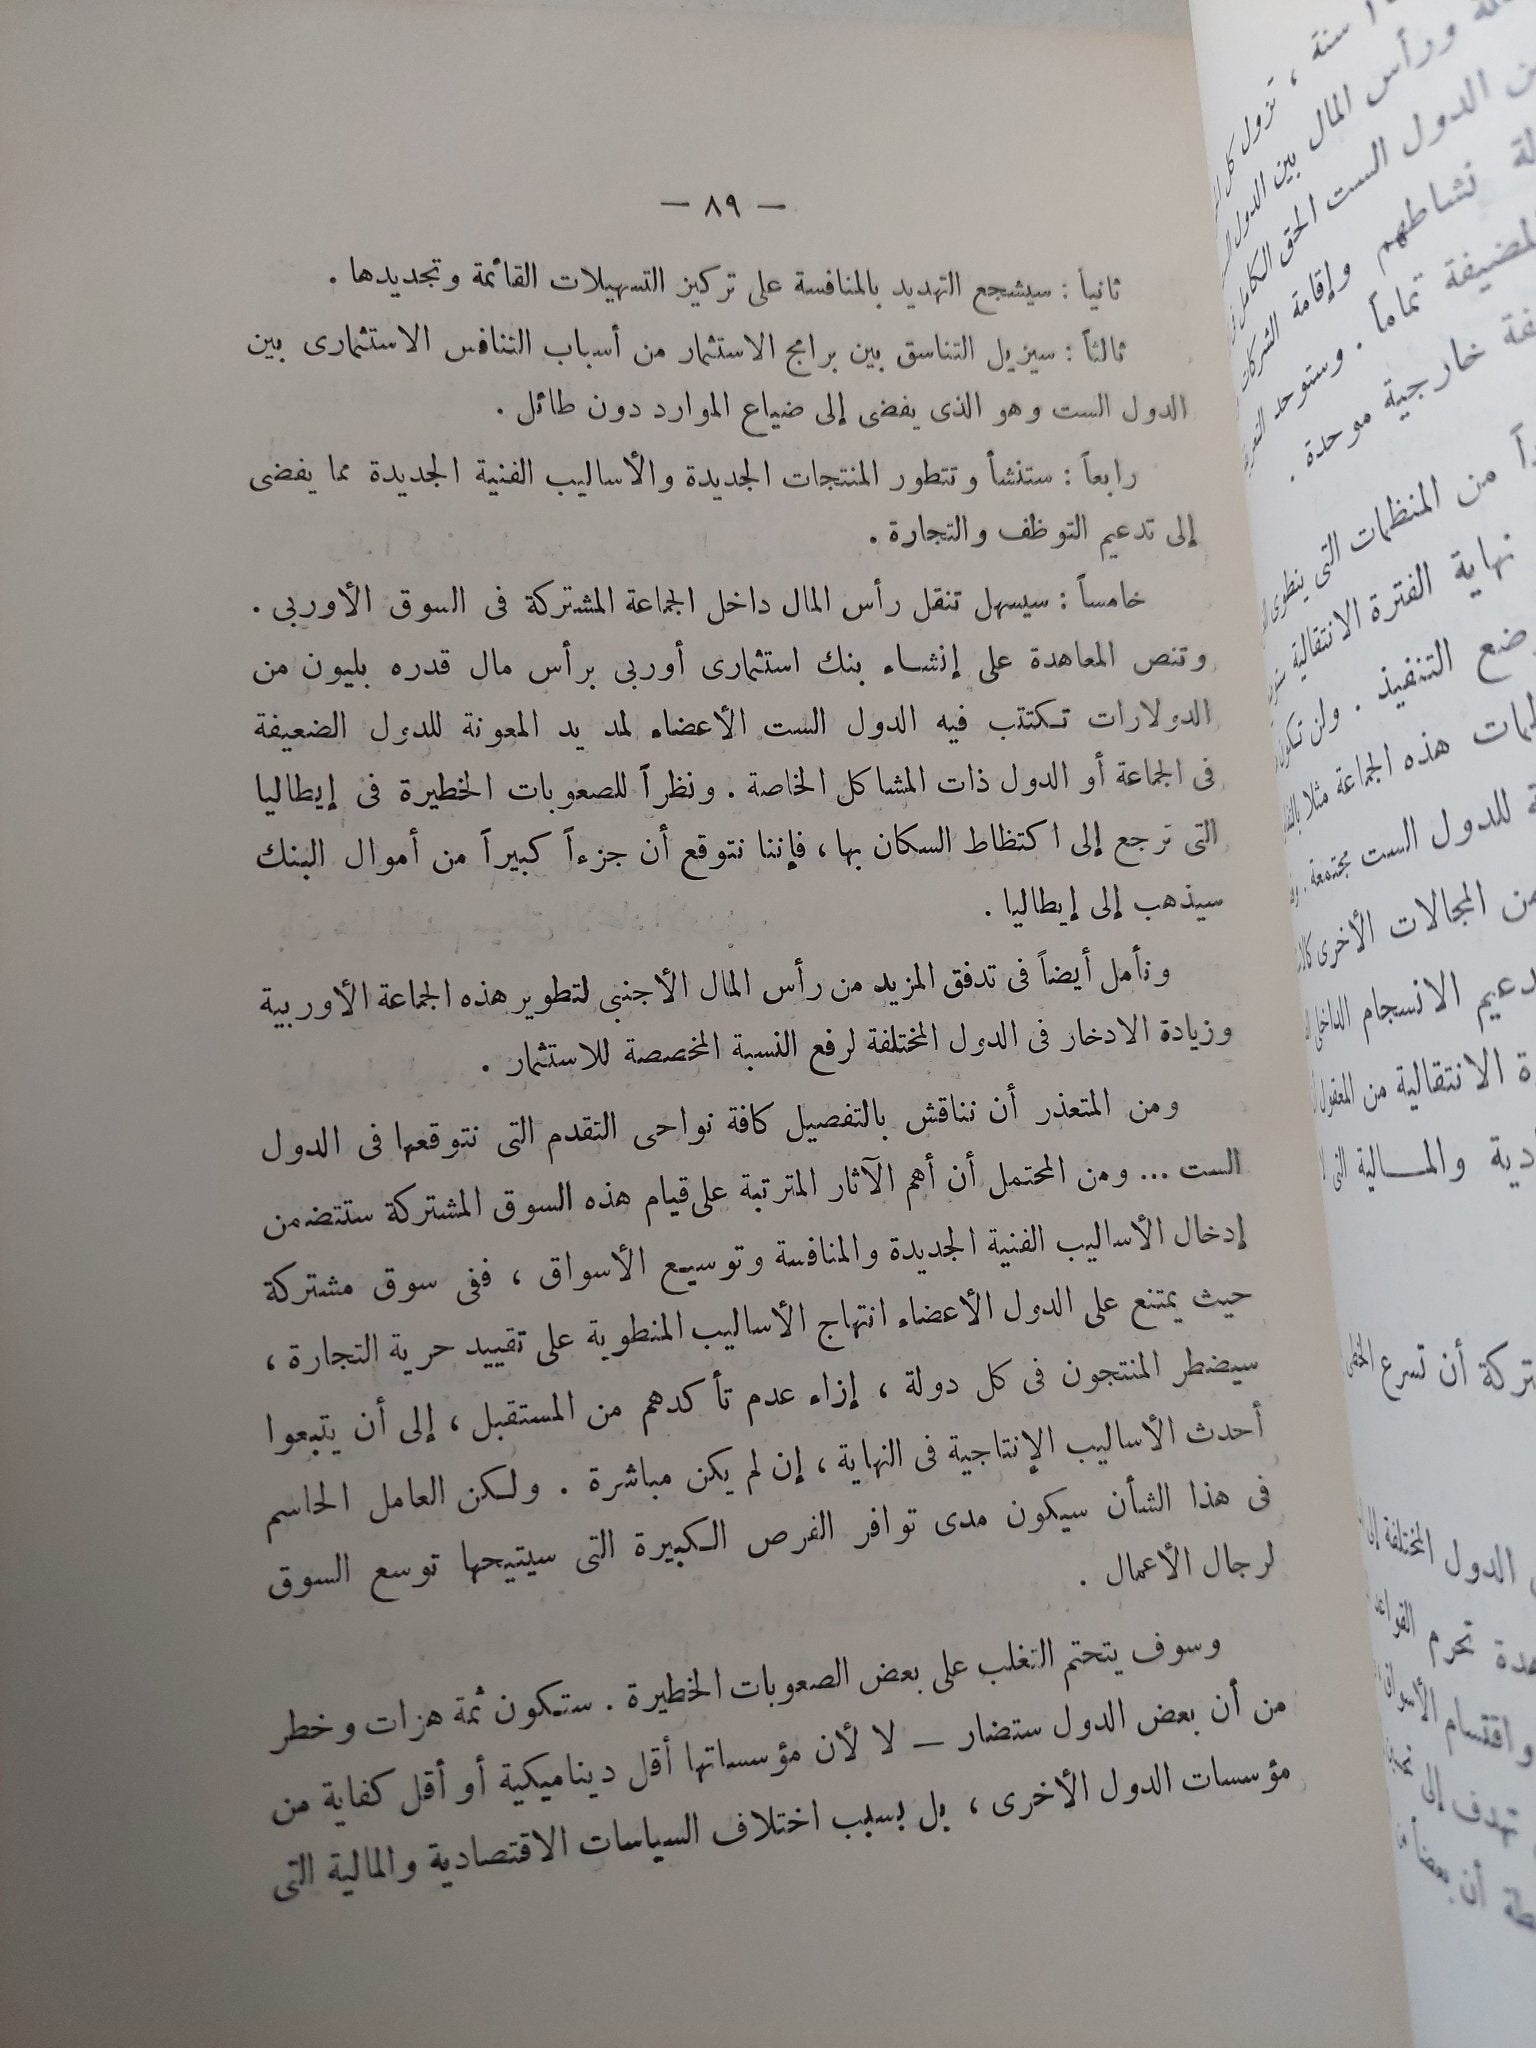 — ٨٩ —
ثانياً : سيشجع التهديد بالمنافسة على تركيز التسهيلات القائمة وتجديدها .
ثالثاً : سيزيل التناسق بين برامج الاستثمار من أسباب التنافس الاستثمارى بين
الدول الست وهو الذى يفضى إلى ضياع الموارد دون طائل .
رابعاً : ستنشأ وتتطور المنتجات الجديدة والأساليب الفنية الجديدة مما يفضى
إلى تدعيم التوظف والتجارة .
خامساً : سيسهل تنقل رأس المال داخل الجماعة المشتركة فى السوق الأوربى .
وتنص المعاهدة على إنشاء بنك استثمارى أوربى برأس مال قدره بليون من
الدولارات تكتتب فيه الدول الست الأعضاء لمد يد المعونة للدول الضعيفة
فى الجماعة أو الدول ذات المشاكل الخاصة . ونظراً للصعوبات الخطيرة فى إيطاليا
التى ترجع إلى اكتظاظ السكان بها ، فإننا نتوقع أن جزءاً كبيراً من أموال البنك
سيذهب إلى إيطاليا .
ونأمل أيضاً فى تدفق المزيد من رأس المال الأجنبى لتطوير هذه الجماعة الأوربية
وزيادة الادخار فى الدول المختلفة لرفع النسبة المخصصة للاستثمار .
ومن المتعذر أن نناقش بالتفصيل كافة نواحى التقدم التى نتوقعها فى الدول
الست ... ومن المحتمل أن أهم الآثار المترتبة على قيام هذه السوق المشتركة ستتضمن
إدخال الأساليب الفنية الجديدة والمنافسة وتوسيع الأسواق ، ففى سوق مشتركة
حيث يمتنع على الدول الأعضاء انتهاج الأساليب المنطوية على تقييد حرية التجارة ،
سيضطر المنتجون فى كل دولة ، إزاء عدم تأكدهم من المستقبل ، إلى أن يتبعوا
أحدث الأساليب الإنتاجية فى النهاية ، إن لم يكن مباشرة . ولكن العامل الحاسم
فى هذا الشأن سيكون مدى توافر الفرص الكبيرة التى سيتيحها توسع السوق
لرجال الأعمال .
وسوف يتحتم التغلب على بعض الصعوبات الخطيرة . ستكون ثمة هزات وخطر
من أن بعض الدول ستضار — لا لأن مؤسساتها أقل ديناميكية أو أقل كفاية من
مؤسسات الدول الأخرى ، بل بسبب اختلاف السياسات الاقتصادية والمالية التى
سنة ، تزول كل
ورأس المال بين الدول
الدول الست الحق الكامل
نشاطهم وإقامة الشركات
المضيفة تماماً . وستوحد
خارجية موحدة .
من المنظمات التى ينطوى
نهاية الفترة الانتقالية
التنفيذ . ولن تكون
هذه الجماعة مثلا
للدول الست مجتمعة .
من المجالات الأخرى
الانسجام الداخلى
الانتقالية من المعقول
والمالية التى
أن تسرع
الدول المختلفة إلى
تحرم القواعد
واقتسام الأسواق
تهدف إلى
أن بعضاً